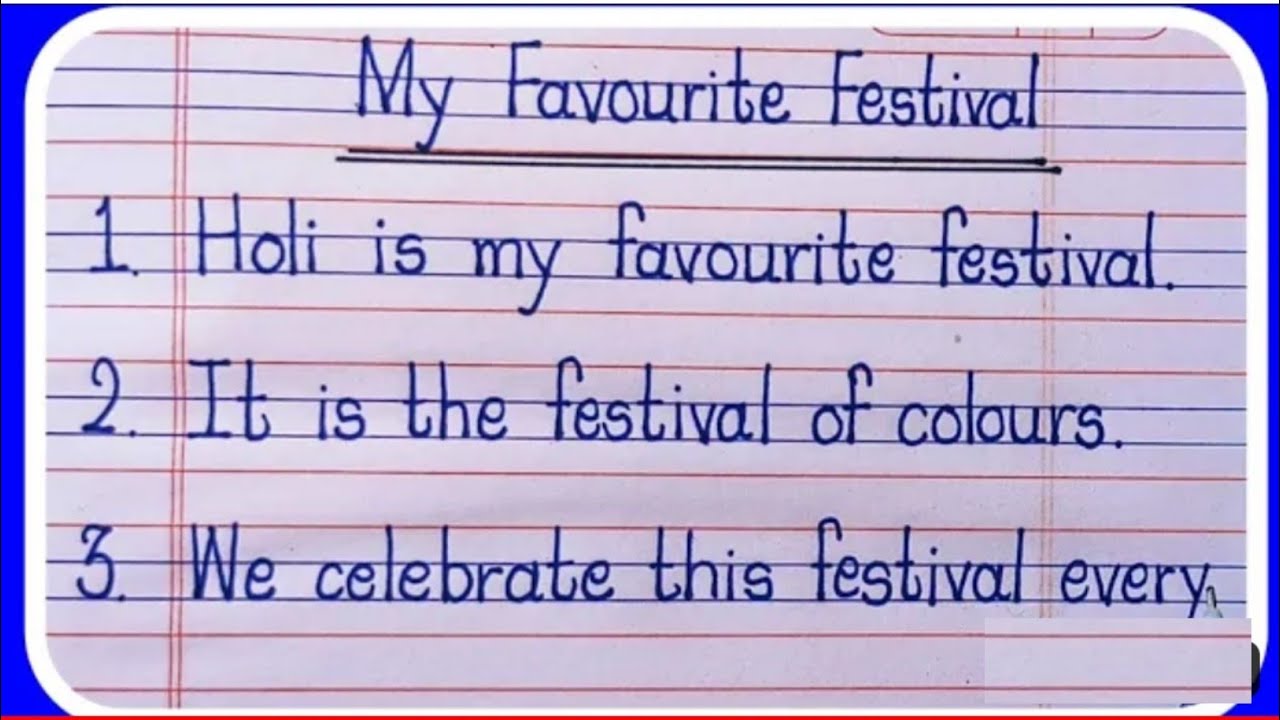 My Favourite Festival
1. Holi is my favourite festival.
2. It is the festival of colours.
3. We celebrate this festival every